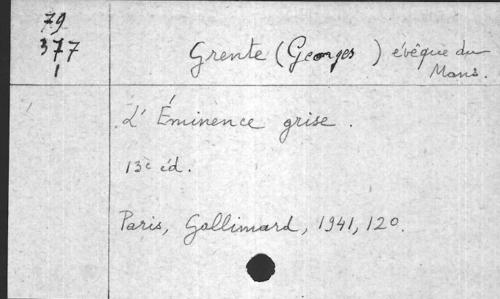 79
377
1
Grente (Georges ) évêque du
Mans.
L'Éminence grise.
13e éd.
Paris, Gallimard, 1941, 120.